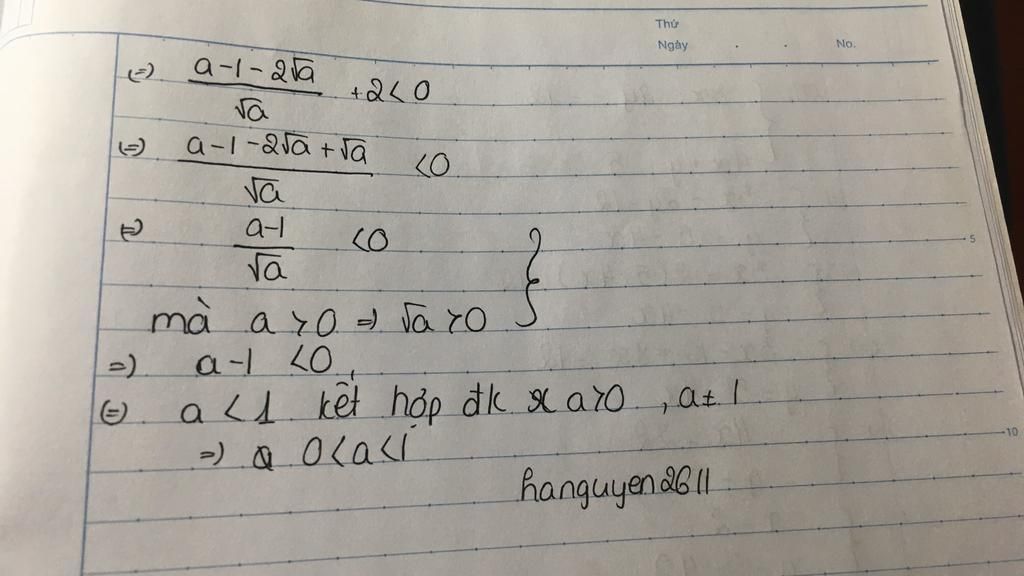 Thứ
Ngày . . No.
(=) \frac{a-1-2\sqrt{a}}{\sqrt{a}} +2<0
(=) \frac{a-1-2\sqrt{a}+\sqrt{a}}{\sqrt{a}} <0
(=) \frac{a-1}{\sqrt{a}} <0
5
mà a>0 => \sqrt{a}>0 }
=> a-1 <0,
(=) a<1 kết hợp đk x a>0, a≠1
10
=> a 0<a<1
hanguyen2611